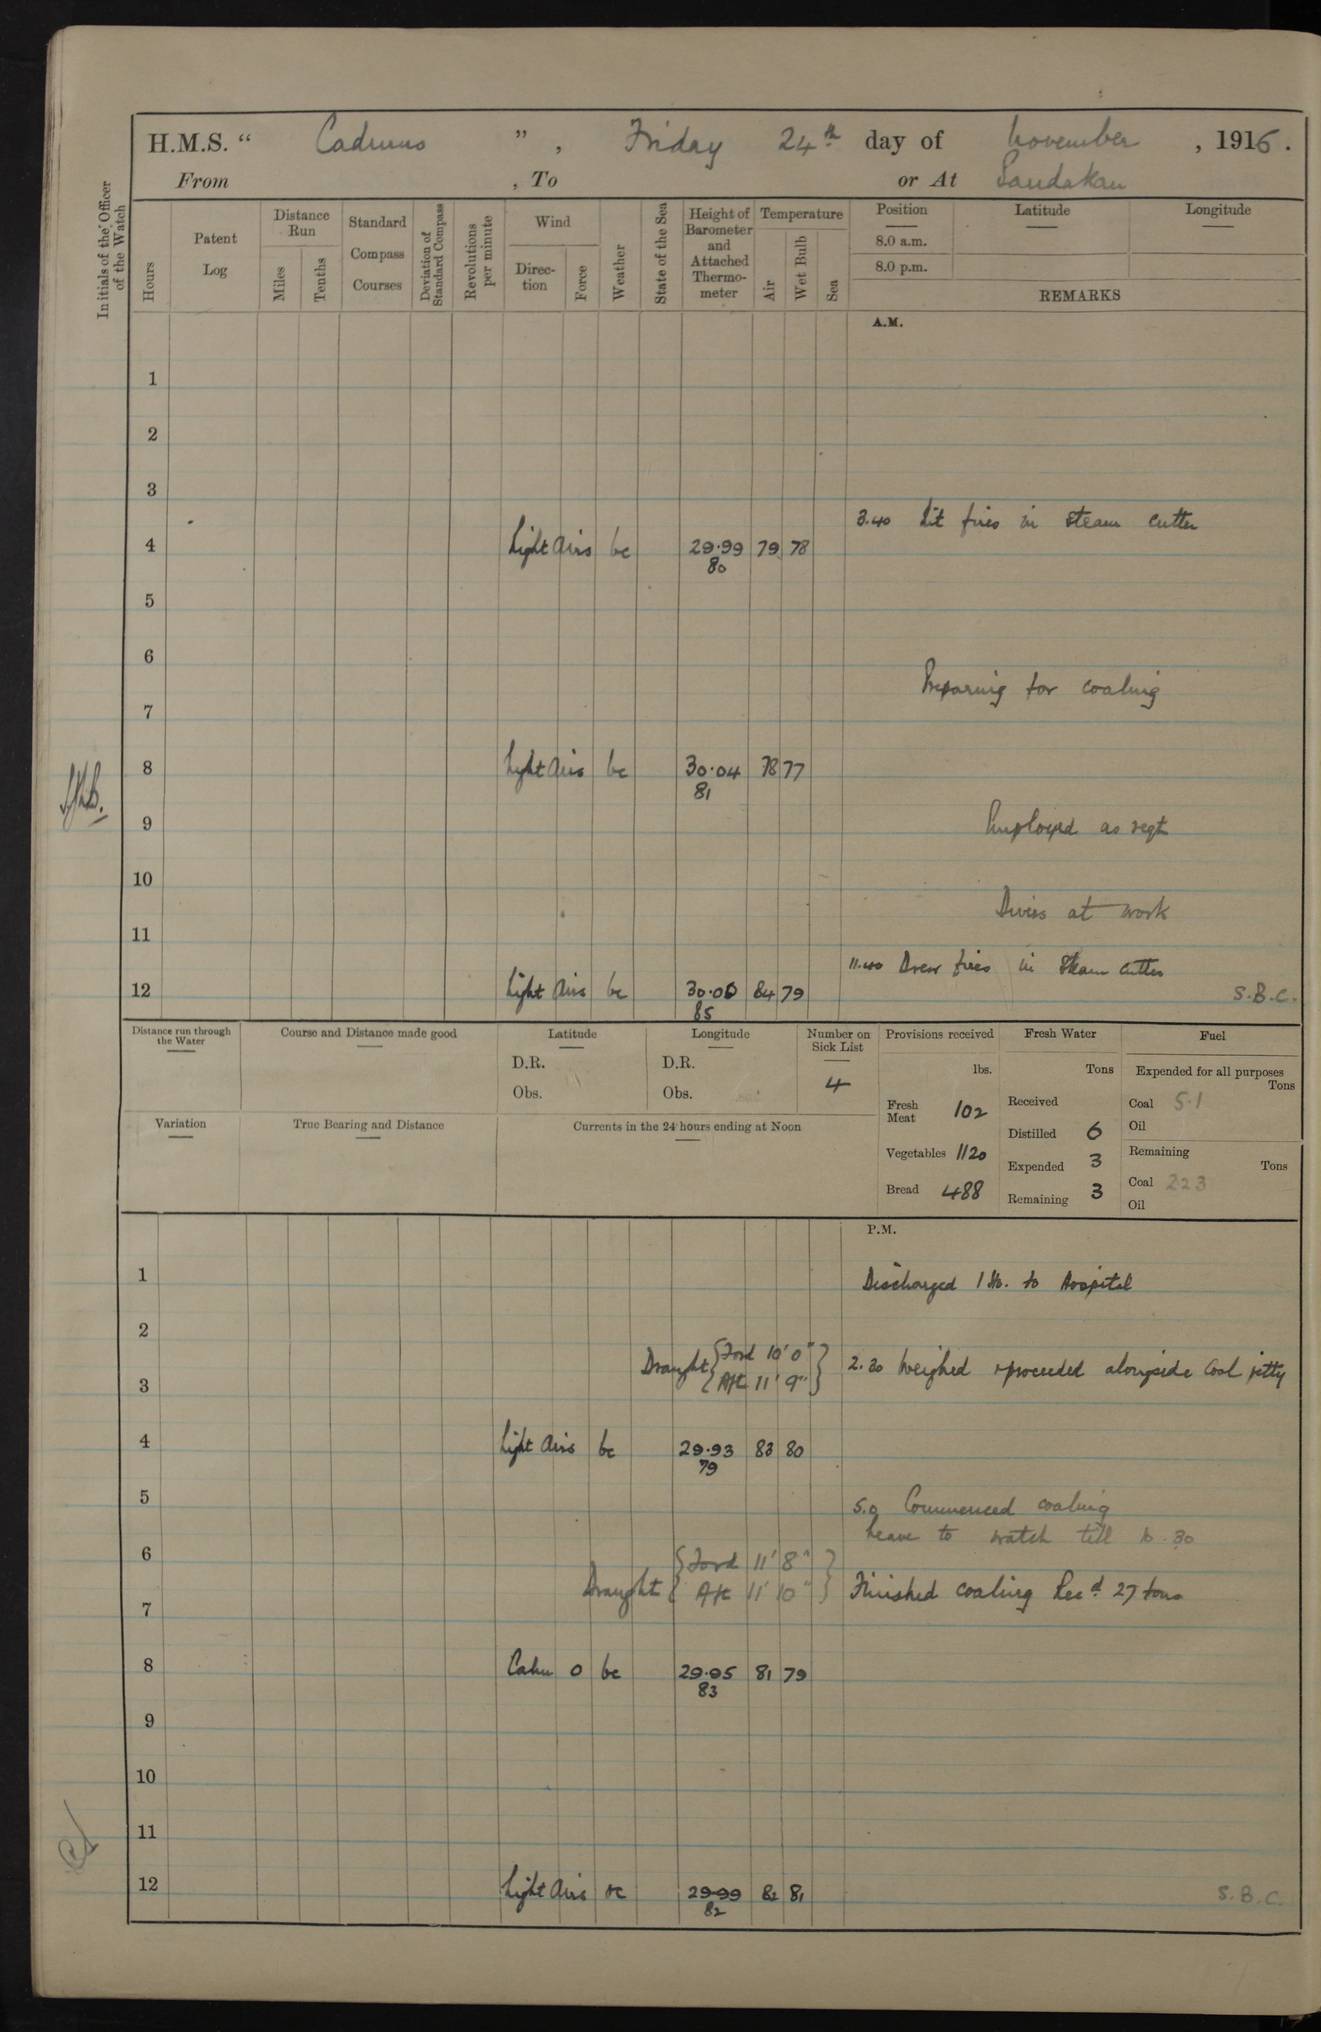 H.M.S. “ Cadmus ” , Friday 24th day of November , 1916.
From , To or At Sandakan
Initials of the Officer of the Watch
Hours
Patent Log
Distance Run
Miles
Tenths
Standard Compass Courses
Deviation of Standard Compass
Revolutions per minute
Wind
Direction
Force
Weather
State of the Sea
Height of Barometer and Attached Thermometer
Temperature
Air
Wet Bulb
Sea
Position Latitude Longitude
8.0 a.m.
8.0 p.m.
REMARKS
A.M.
1
2
3
3.40 Lit fires in steam cutter
4 Light Airs bc 29.99 79 78
80
5
6
Preparing for coaling
7
8 Light Airs bc 30.04 78 77
81
9 Employed as reqt
10
Divers at work
11
11.40 Drew fires in Steam Cutter
12 Light Airs bc 30.00 84 79 S.B.C.
85
Distance run through the Water
Course and Distance made good
Latitude
D.R.
Obs.
Longitude
D.R.
Obs.
Number on Sick List
4
Variation
True Bearing and Distance
Currents in the 24 hours ending at Noon
Provisions received
lbs.
Fresh Meat 102
Vegetables 1120
Bread 488
Fresh Water
Tons
Received
Distilled 6
Expended 3
Remaining 3
Fuel
Expended for all purposes
Tons
Coal 5.1
Oil
Remaining
Tons
Coal 223
Oil
P.M.
1 Discharged 1 to Hospital
2
Draught { Ford 10' 0" } 2.30 Weighed & proceeded alongside Coal jetty
{ Aft 11' 9" }
3
4 Light Airs bc 29.93 83 80
79
5 5.0 Commenced coaling
Leave to watch till 10.30
6
Draught { Ford 11' 8" }
{ Aft 11' 10" } Finished coaling Recd 27 tons
7
8 Calm 0 bc 29.95 81 79
83
9
10
11
12 Light Airs 29.99 82 81 S.B.C.
82